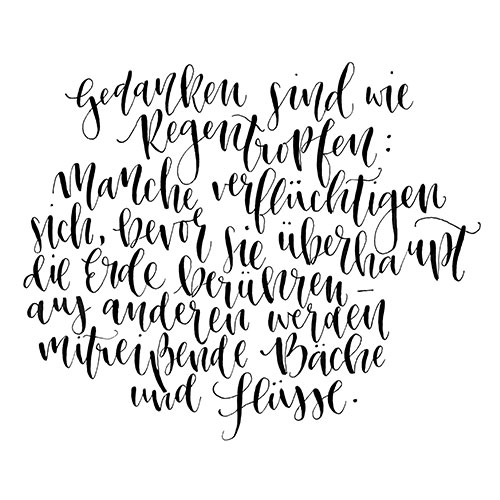 Gedanken sind wie
Regentropfen:
Manche verflüchtigen
sich, bevor sie überhaupt
die Erde berühren –
aus anderen werden
mitreißende Bäche
und Flüsse.